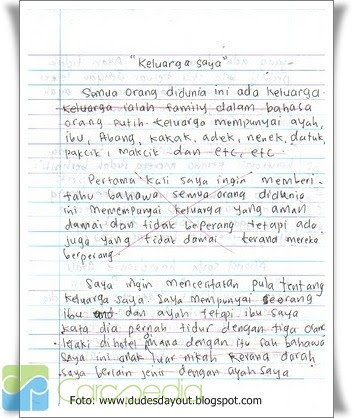 "Keluarga saya"
Semua orang didunia ini ada keluarga.
Keluarga ialah family dalam bahasa
orang putih. Keluarga mempunyai ayah,
ibu, Abang, kakak, adek, nenek, datuk,
pakcik, makcik dan etc, etc.
Pertama kali saya ingin memberi-
tahu bahawa semua orang didunia
ini memempunyai keluarga yang aman
damai dan tidak beperang tetapi ada
juga yang tidak damai kerana mereka
berperang.
Saya ingin menceritakan pula tentang
keluarga saya. Saya mempunyai seorang
ibu dan ayah tetapi ibu saya
kata dia pernah tidur dengan tiga orang
lelaki dihotel mana dengan itu sah bahawa
saya ini anak luar nikah kerana darah
saya berlain jenis dengan ayah saya
Carcepedia
Foto: www.dudesdayout.blogspot.com